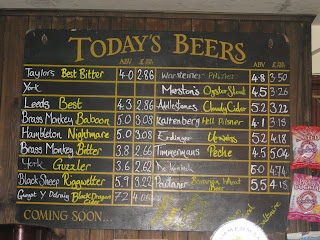 TODAY'S BEERS
ABV £.P.
ABV £.P.
Taylors Best Bitter 4.0 2.86
York
Leeds Best 4.3 2.86
Brass Monkey Baboon 5.0 3.08
Hambleton Nightmare 5.0 3.08
Brass Monkey Bitter 3.8 2.66
York Guzzler 3.6 2.62
Black Sheep Riggwelter 5.9 3.22
Black Dragon 7.2
Warsteiner Pilsner 4.8 3.50
Marston's Oyster Stout 4.5 3.26
Addlestones Cloudy Cider 5.2 3.22
Kaltenberg Hell Pilsner 4.1 3.15
Erdinger Urweiss 5.2 4.18
Timmermans Peche 4.5 5.04
5.0 4.74
Paulaner Wheat Beer 5.5 4.15
COMING SOON...